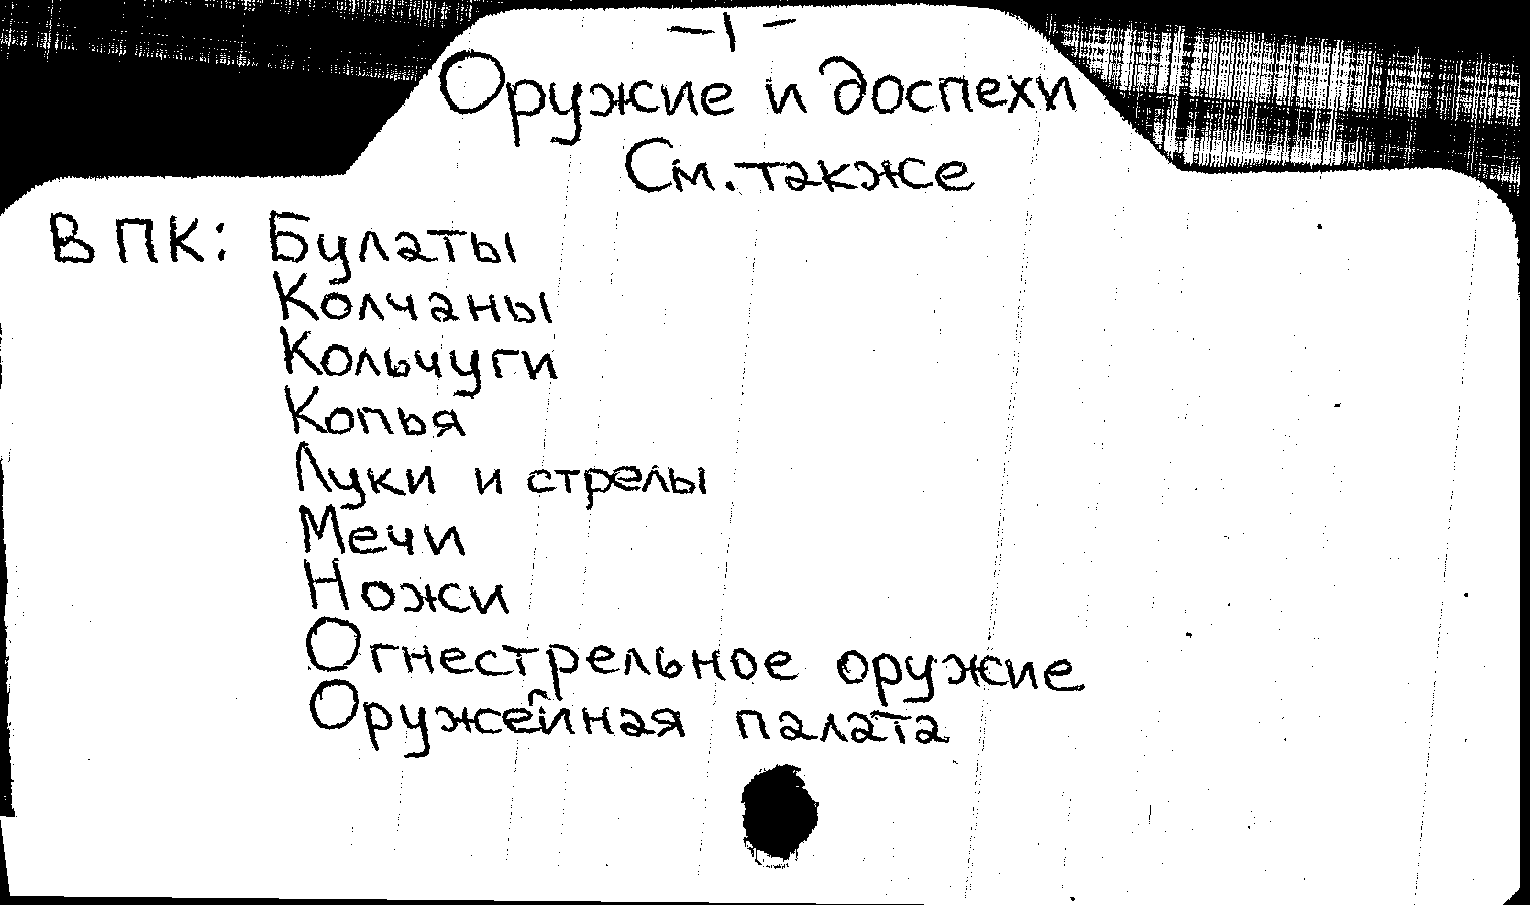 -1-
Оружие и доспехи
См. также
В ПК: Булаты
Колчаны
Кольчуги
Копья
Луки и стрелы
Мечи
Ножи
Огнестрельное оружие
Оружейная палата